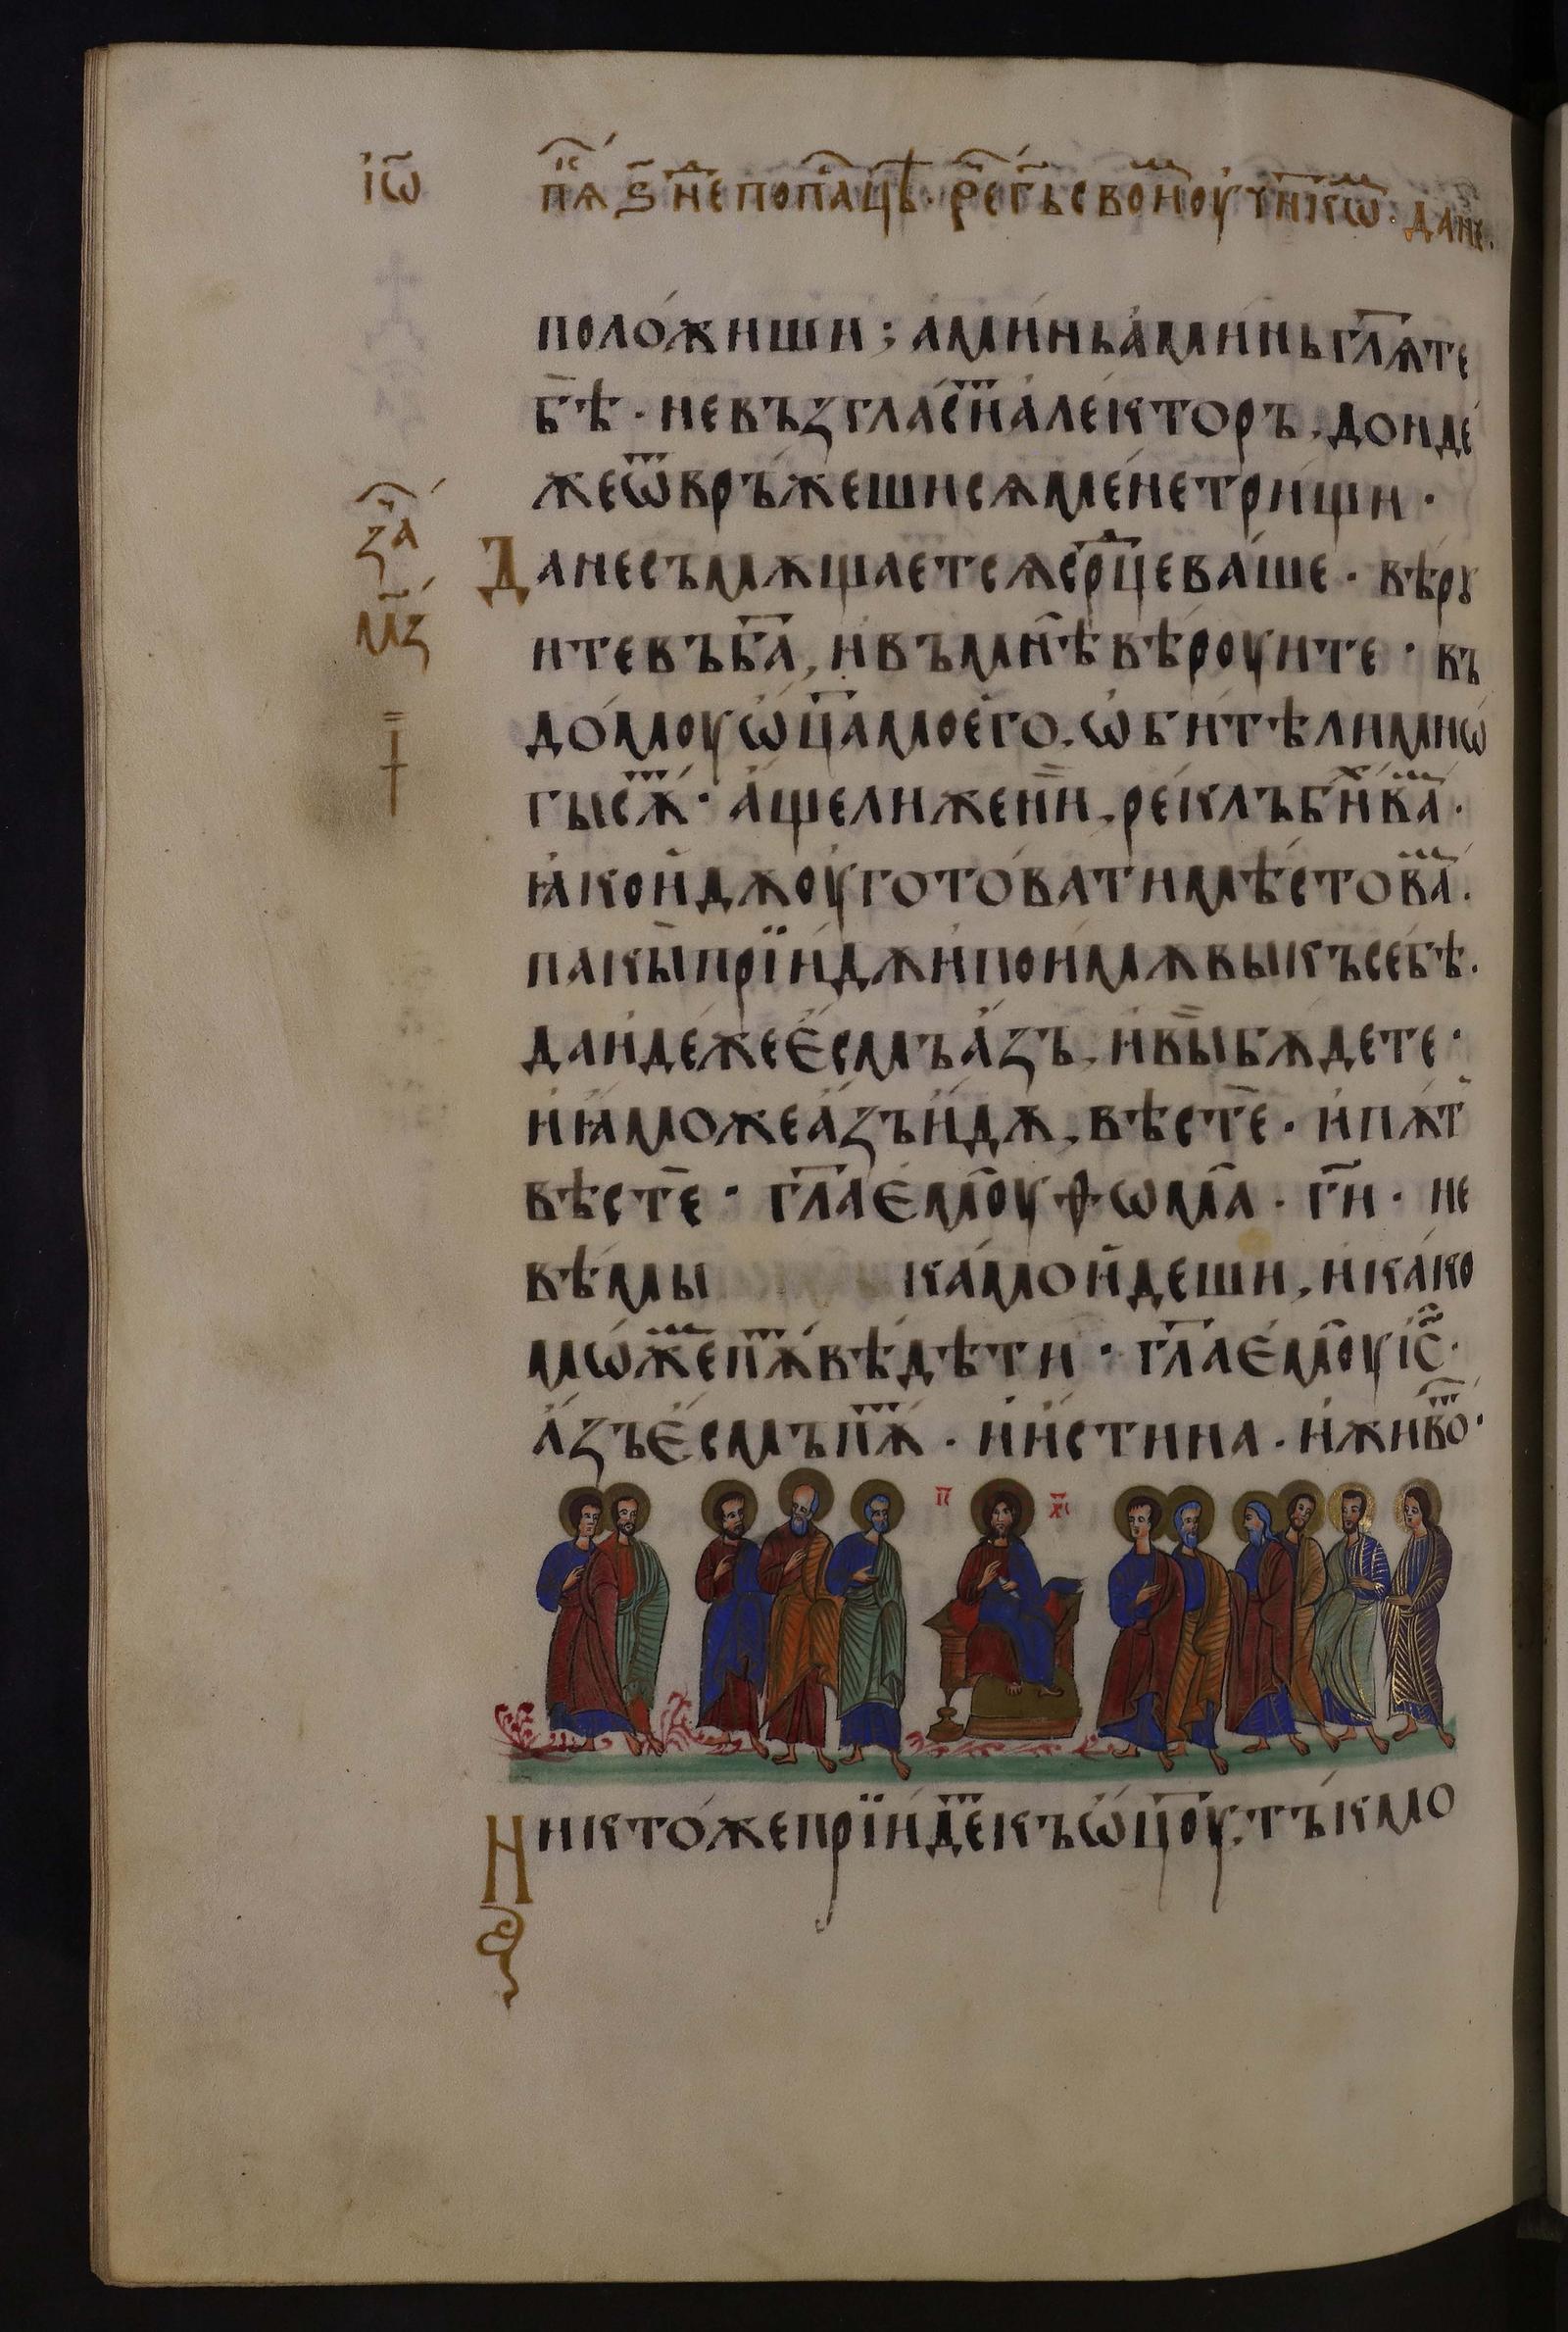 і҆ѡ҃
пѧ҃ ѕ҃ нⷣе по па́сцѣ. рⷱе гь свои҆ⷨ оу҆чн҃кѡⷨ. да не.
поло́жиши; а҆ми́нь а҆ми́нь гл҃ѫ те
бѣ̀. не възгласи́ⷮ а҆ле́кторъ, донде́
же ѿвръ́жешисѧ менѐ три́щи.
за҇
м҃з
Да не съмѫщаетсѧ срⷣце ва́ше. вѣ́рꙋ
ите въ ба҃, и҆ въ мѧ̀ вѣ́роуите. въ
до́моу ѡ҆ц҃а моего̀, ѡ҆би́тѣли мнѡ́
гы сѫ́ⷮ. а҆́ще ли же ни̏, ре́клъ бы́ⷯ ва́ⷨ.
ꙗ҆́ко и҆дѫ̀ оу҆гото́вати мѣ́сто ва́ⷨ.
пакы̀ прїи҆дѫ̀ и҆ поимѫ̀ вы къ себѣ̀.
да и҆де́же є҆́смъ а҆́зъ, и҆ вы̏ бѫ́дете.
и҆ ꙗ҆́може а҆́зъ и҆дѫ̀, вѣ́сте. и҆ пѫ́т
вѣ́сте. гл҃а є҆моу̀ ѳѡма̀. ги҃. не
вѣ́мы ка́мо и҆́деши, и҆ ка́ко
мѡ́жеⷨ пѫ́ⷮ вѣ́дѣти. гл҃а є҆моу̀ і҆с҃.
а҆́зъ є҆́смъ пѫ́ⷮ. и҆ и҆́стина. и҆ живо́ⷮ.
І҃С Х҃С
И никто́же прїи́деⷮ къ ѡ҆ц҃оу, тъ́кмо